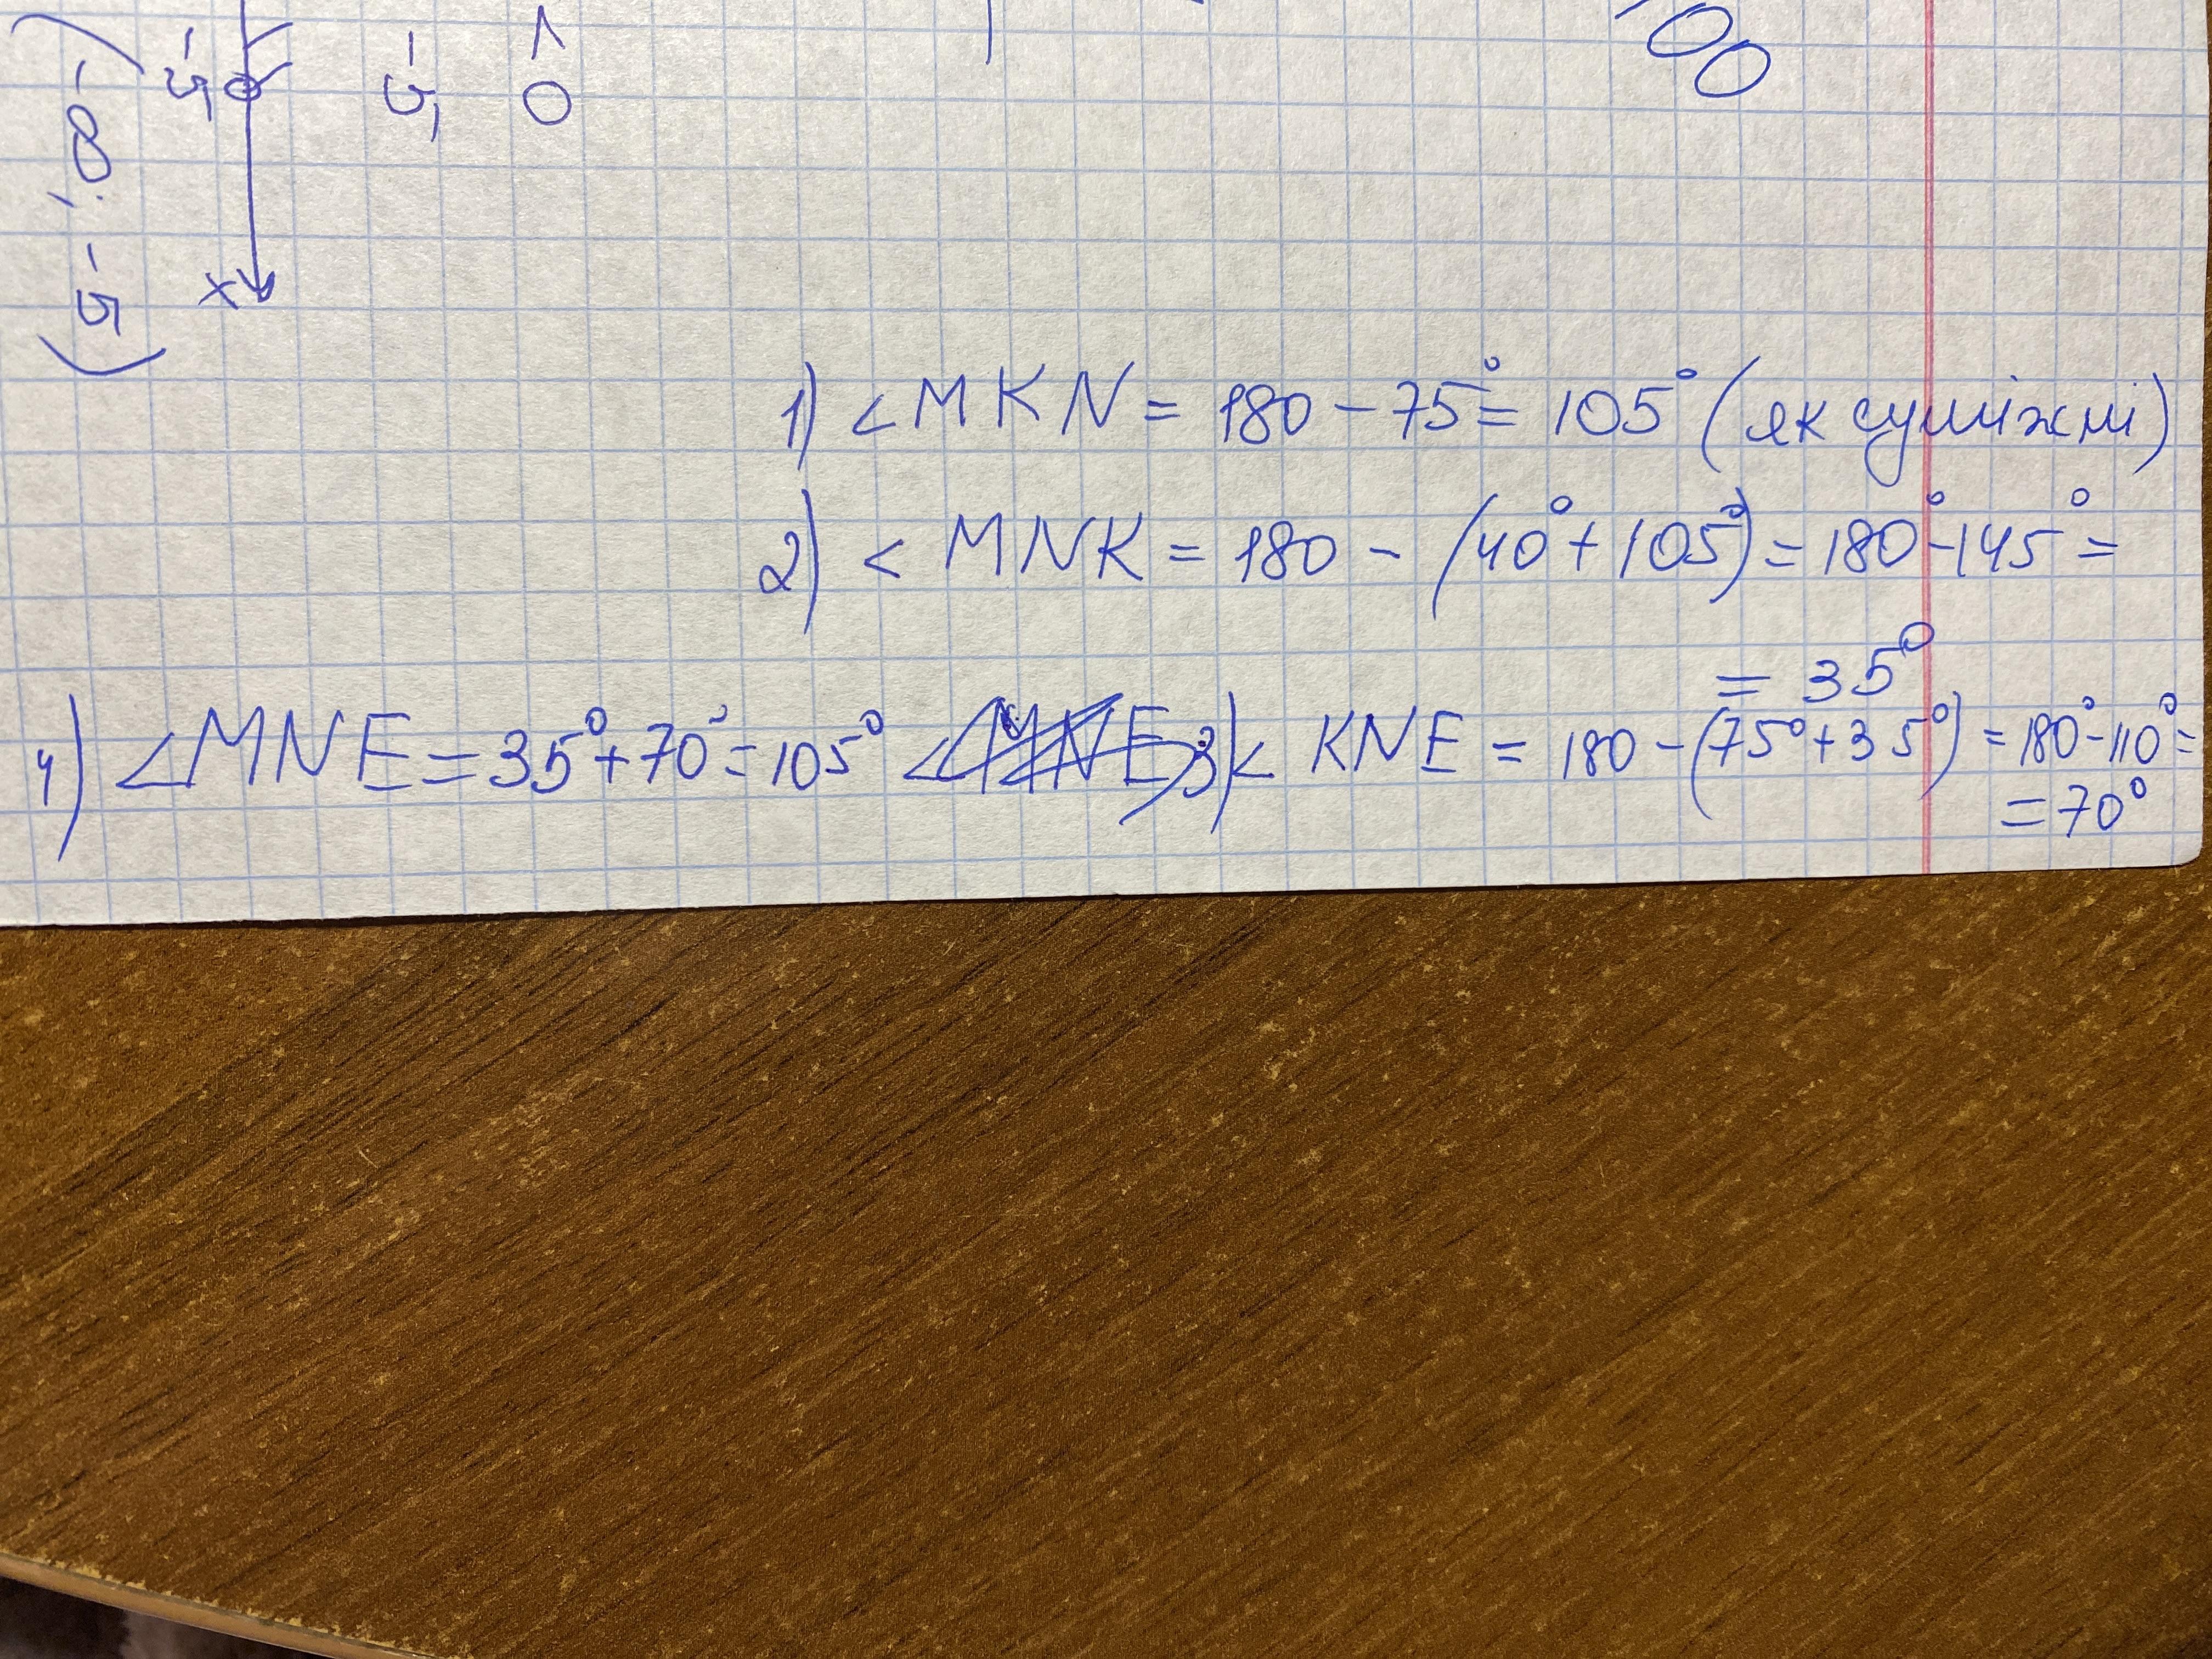 00
< 0
-5
-5
x
(-∞; -5)
1) <MKN = 180 - 75° = 105° (як суміжні)
2) < MNK = 180 - (40° + 105°) = 180° - 145° =
= 35°
4) ∠MNE = 35° + 70° = 105° 3) < KNE = 180 - (75° + 35°) = 180° - 110° =
= 70°